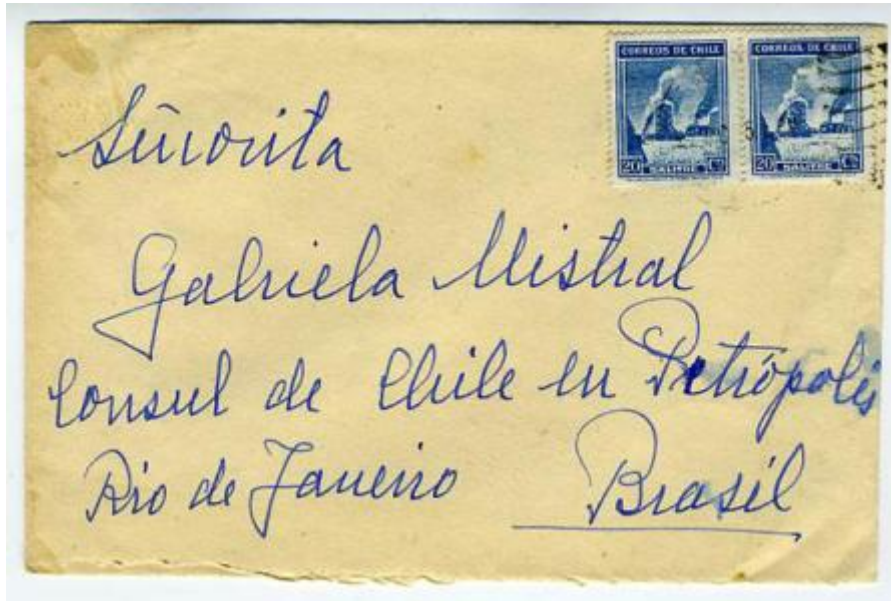 CORREOS DE CHILE CORREOS DE CHILE
20 SALITRE Cs 20 SALITRE Cs
Señorita
Gabriela Mistral
Consul de Chile en Petrópolis
Rio de Janeiro Brasil